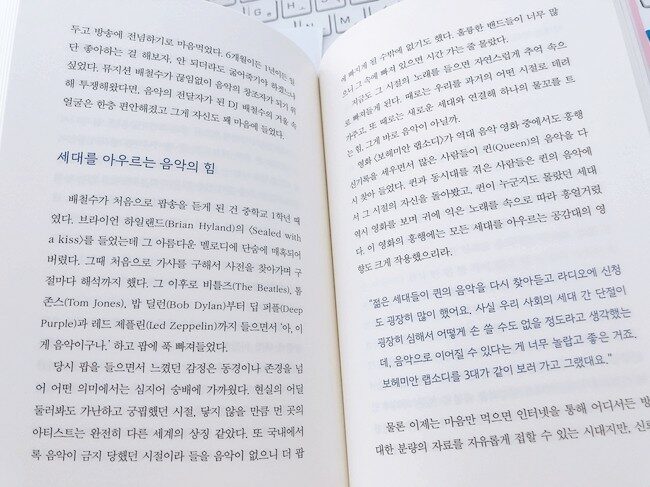 두고 방송에 전념하기로 마음먹었다. 6개월이든 1년이든 일
단 좋아하는 걸 해보자, 안 되더라도 굶어죽기야 하겠느냐
싶었다. 뮤지션 배철수가 끊임없이 음악의 창조자가 되기 위
해 투쟁해왔다면, 음악의 전달자가 된 DJ 배철수의 거울 속
얼굴은 한층 편안해졌고 그게 자신도 꽤 마음에 들었다.
세대를 아우르는 음악의 힘
배철수가 처음으로 팝송을 듣게 된 건 중학교 1학년 때
였다. 브라이언 하일랜드(Brian Hyland)의 〈Sealed with
a kiss〉를 들었는데 그 아름다운 멜로디에 단숨에 매혹되어
버렸다. 그때 처음으로 가사를 구해서 사전을 찾아가며 구
절마다 해석까지 했다. 그 이후로 비틀즈(The Beatles), 톰
존스(Tom Jones), 밥 딜런(Bob Dylan)부터 딥 퍼플(Deep
Purple)과 레드 제플린(Led Zeppelin)까지 들으면서 '아, 이
게 음악이구나.' 하고 팝에 푹 빠져들었다.
당시 팝을 들으면서 느꼈던 감정은 동경이나 존경을 넘
어 어떤 의미에서는 심지어 숭배에 가까웠다. 현실의 어딜
둘러봐도 가난하고 궁핍했던 시절, 닿지 않을 만큼 먼 곳의
아티스트는 완전히 다른 세계의 상징 같았다. 또 국내에서
록 음악이 금지 당했던 시절이라 들을 음악이 없으니 더 팝
에 빠지게 될 수밖에 없기도 했다. 훌륭한 밴드들이 너무 많
으니 그 속에 빠져 있으면 시간 가는 줄 몰랐다.
지금도 그 시절의 노래를 들으면 자연스럽게 추억 속으
로 빠져들게 된다. 때로는 우리를 과거의 어떤 시절로 데려
가주고, 또 때로는 새로운 세대와 연결해 하나의 물꼬를 트
는 힘, 그게 바로 음악이 아닐까.
영화 〈보헤미안 랩소디〉가 역대 음악 영화 중에서도 흥행
신기록을 세우면서 많은 사람들이 퀸(Queen)의 음악을 다
시 찾아 들었다. 퀸과 동시대를 겪은 사람들은 퀸의 음악에
서 그 시절의 자신을 돌아봤고, 퀸이 누군지도 몰랐던 세대
역시 영화를 보며 귀에 익은 노래를 속으로 따라 흥얼거렸
다. 이 영화의 흥행에는 모든 세대를 아우르는 공감대의 영
향도 크게 작용했으리라.
"젊은 세대들이 퀸의 음악을 다시 찾아듣고 라디오에 신청
도 굉장히 많이 했어요. 사실 우리 사회의 세대 간 단절이
굉장히 심해서 어떻게 손 쓸 수도 없을 정도라고 생각했는
데, 음악으로 이어질 수 있다는 게 너무 놀랍고 좋은 거죠.
보헤미안 랩소디를 3대가 같이 보러 가고 그랬대요."
물론 이제는 마음만 먹으면 인터넷을 통해 어디서든 방
대한 분량의 자료를 자유롭게 접할 수 있는 시대지만,